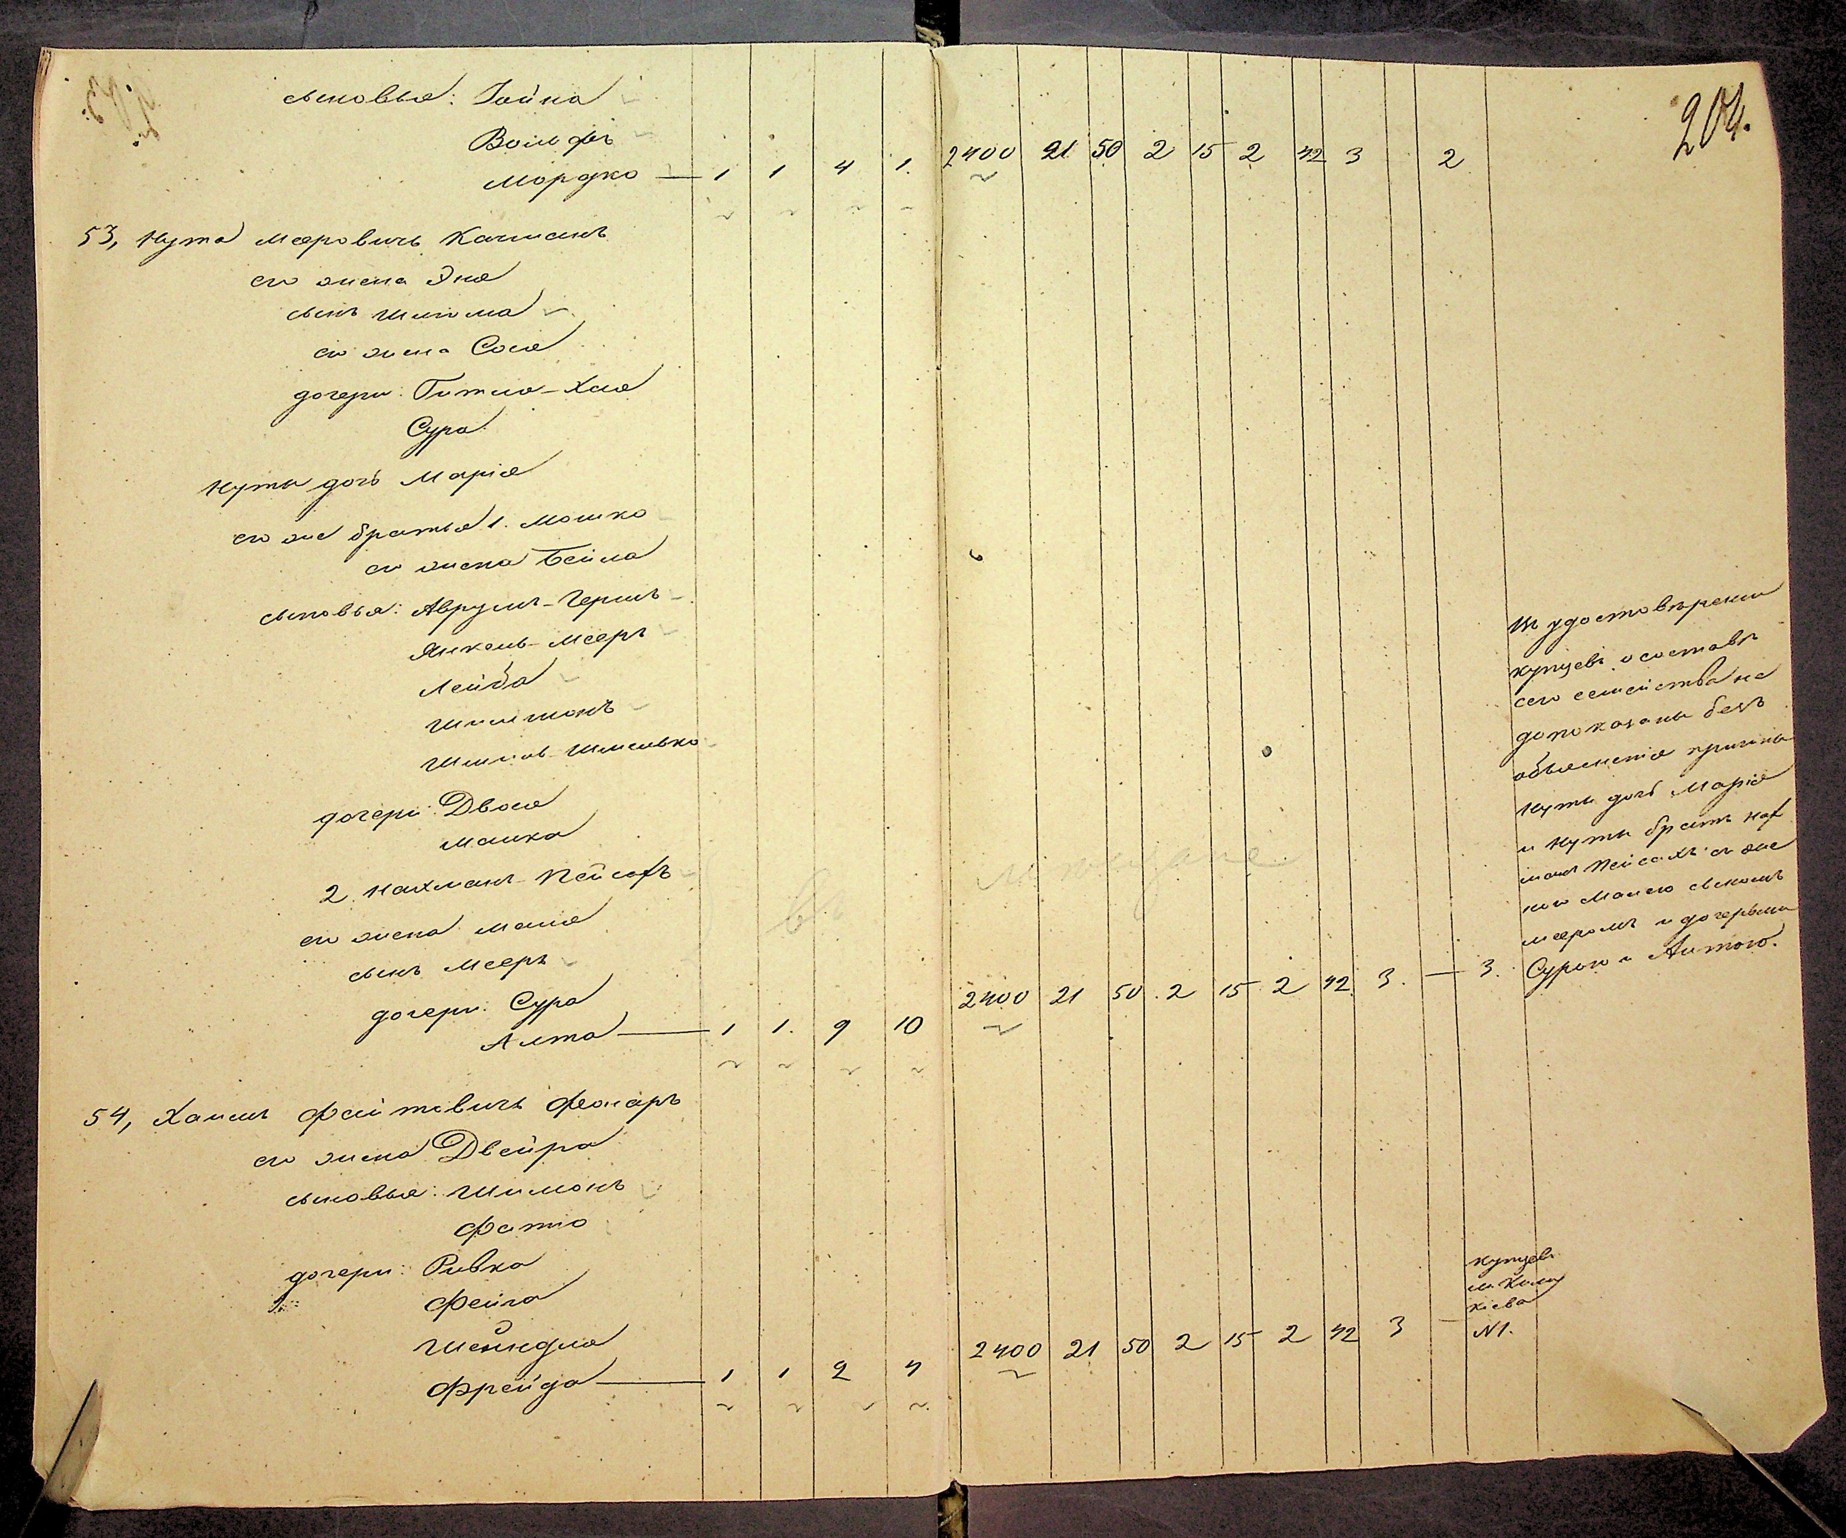 204.
сыновья: Гойна
Вольфъ
Мордко — 1 1 4 1. 2400 21 50 2 15 2 42 3 2
53, Нута Мееровичъ Кацманъ
его жена Эня
сынъ Шлома
его жена Сося
дочери: Гитля-Хая
Сура
Нуты дочь Марія
его же братья 1. Мошко
его жена Бейла
сыновья: Аврумъ-Гершъ
Янкель-Мееръ
Лейба
дочери: Двося
Малка
2. Нахманъ-Пейсахъ
его жена Маля
сынъ Мееръ
дочери: Сура
Алта — 1 1. 9 10 2400 21 50. 2 15 2 42. 3. — 3.
Въ удостовѣреніи
купцевъ о составѣ
его семейства не
допоказаны безъ
объясненія причины
Нуты дочь Марія
и Нуты братъ Нах
манъ Пейсахъ съ же
ною Малею сыномъ
Мееромъ и дочерьми
Сурою и Алтою.
54, Хаимъ Файтовичъ Фонаръ
его жена Двейра
сыновья: Шимонъ
Фатио
дочери: Ривка
Фейга
Шейндля
Фрейда — 1 1 2 4 2400 21 50 2 15 2 42 3 —
купцевъ
Кіева
№1.